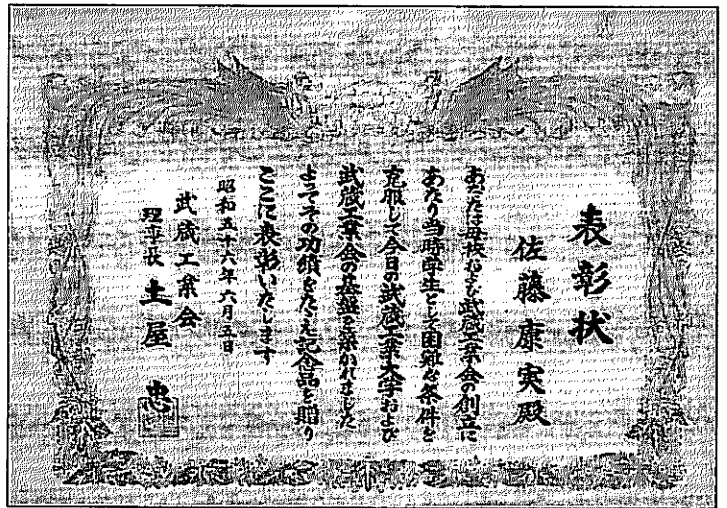 表彰状
佐藤康実殿
あなたは母校および武蔵工業会の創立に
あたり当時学生として困難な条件を
克服して今日の武蔵工業大学および
武蔵工業会の基盤を築かれました
よってその功績をたたえ記念品を贈り
ここに表彰いたします
昭和五十六年六月五日
武蔵工業会
理事長 土屋忠